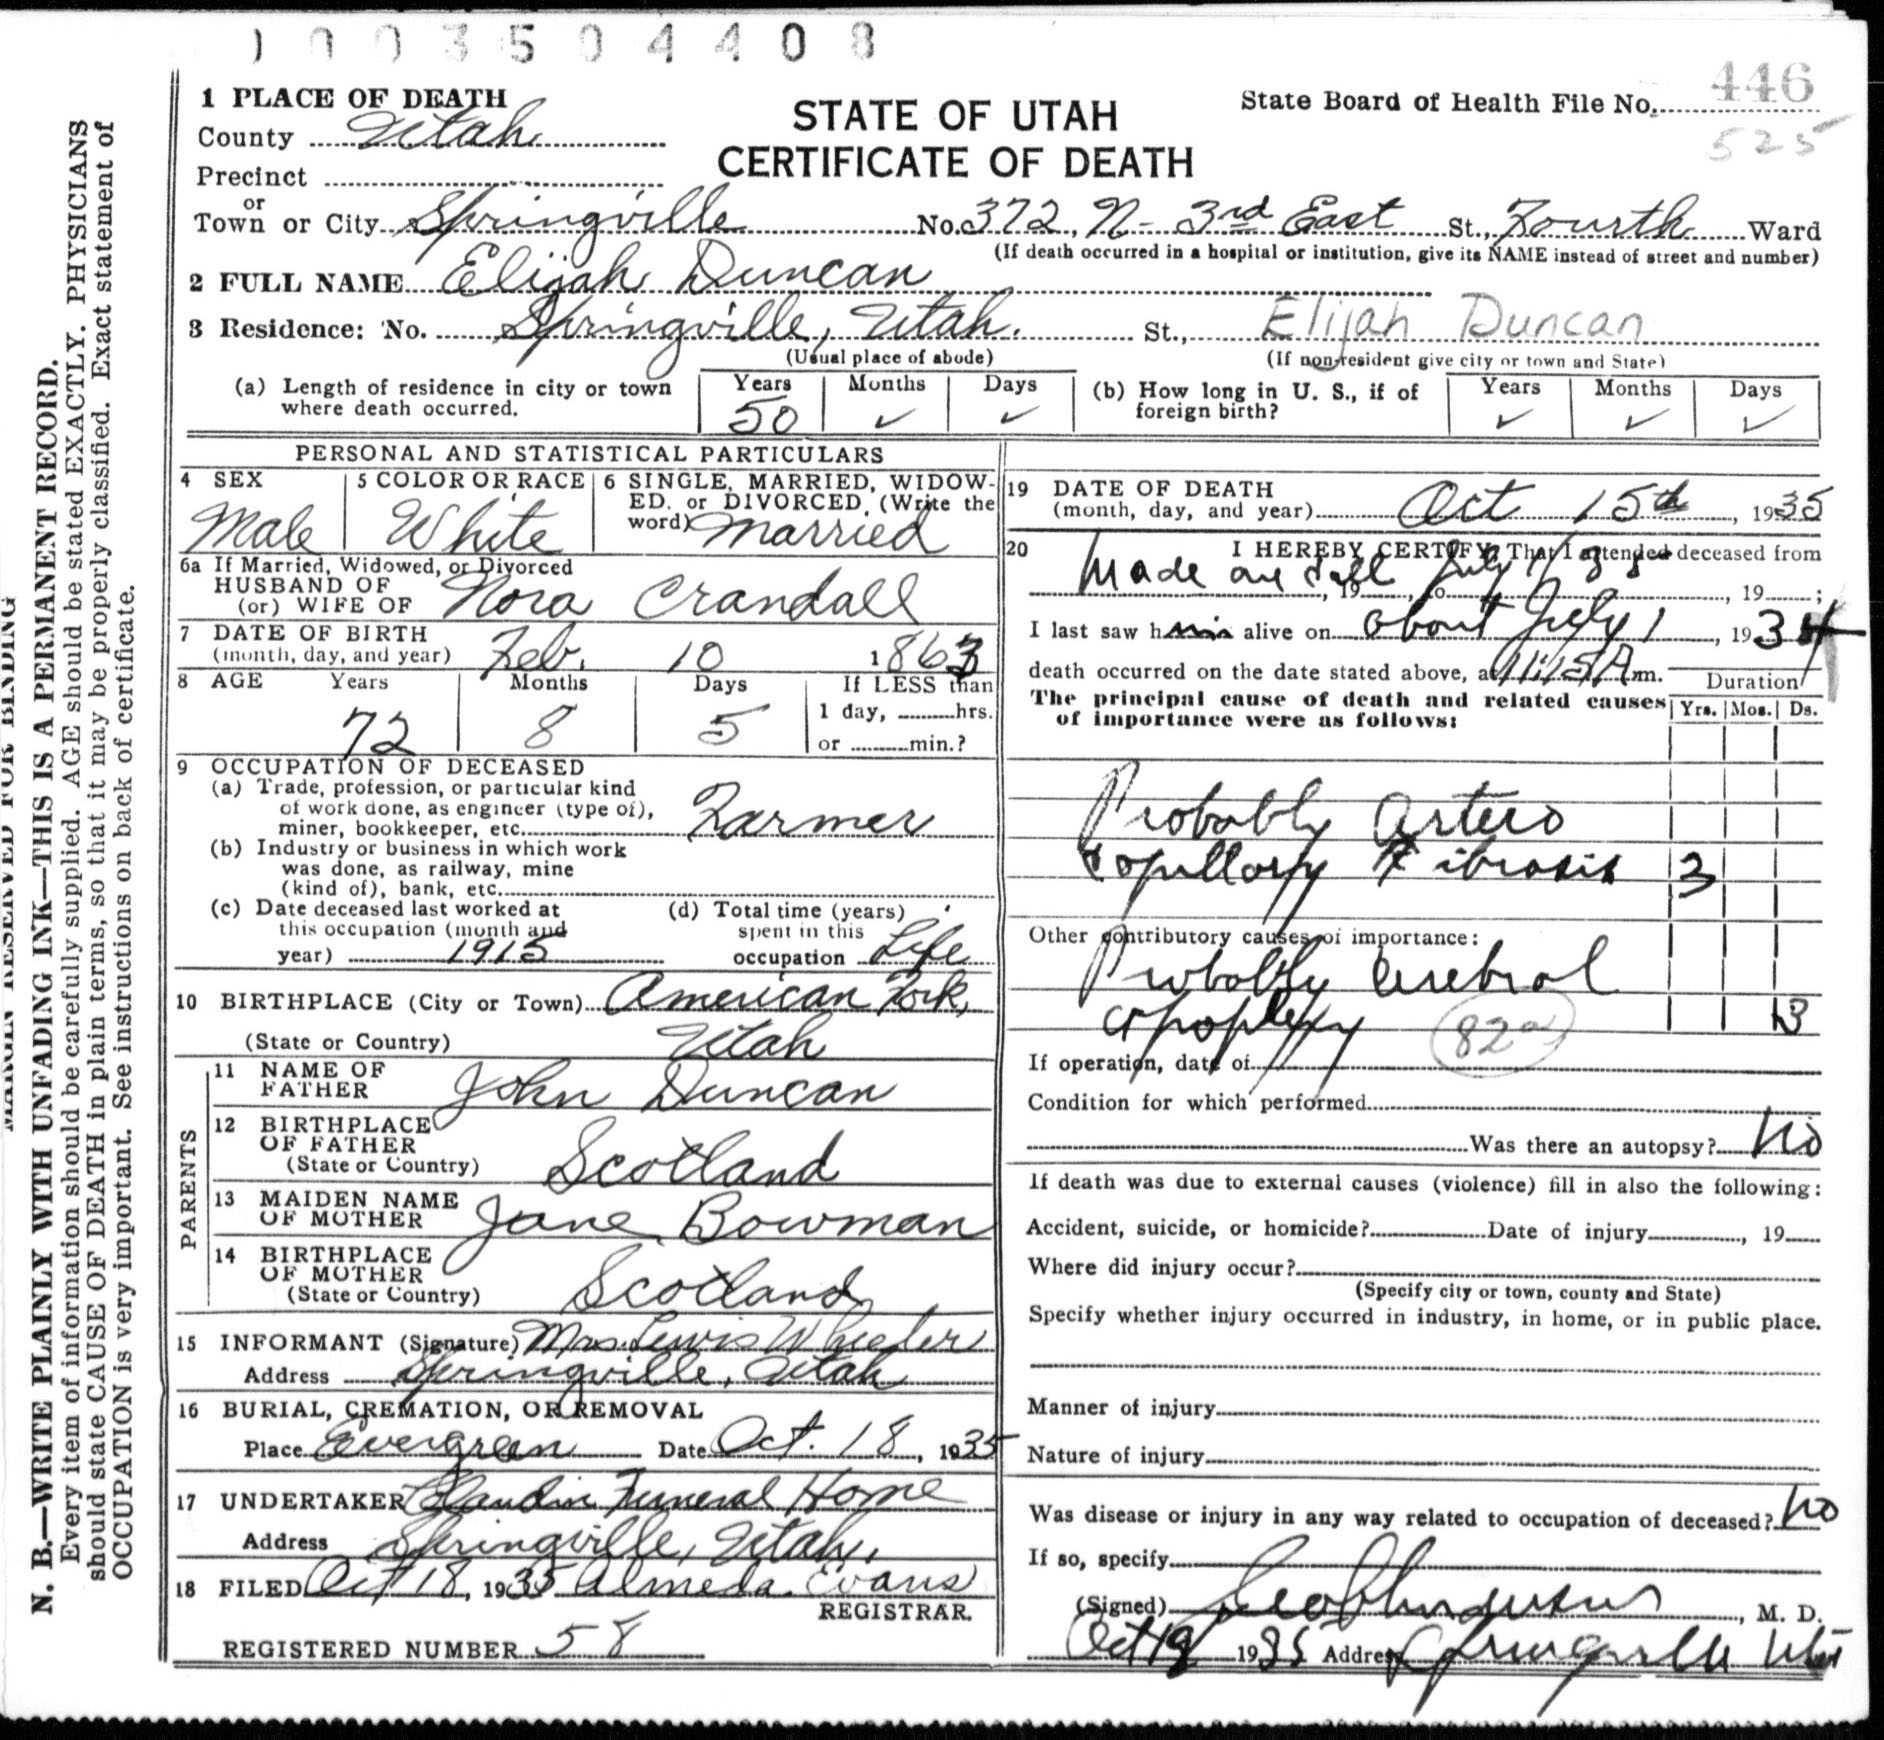 1003504408
1 PLACE OF DEATH
County Utah
Precinct
or
Town or City Springville No. 372, N - 3rd East St., Fourth Ward
STATE OF UTAH
CERTIFICATE OF DEATH
State Board of Health File No. 446
525
(If death occurred in a hospital or institution, give its NAME instead of street and number)
2 FULL NAME Elijah Duncan
3 Residence: No. Springville, Utah. St., Elijah Duncan
(Usual place of abode) (If non-resident give city or town and State)
(a) Length of residence in city or town where death occurred. Years 50 Months ✓ Days ✓
(b) How long in U. S., if of foreign birth? Years ✓ Months ✓ Days ✓
PERSONAL AND STATISTICAL PARTICULARS
4 SEX Male
5 COLOR OR RACE White
6 SINGLE, MARRIED, WIDOW-
ED, or DIVORCED, (Write the
word) Married
6a If Married, Widowed, or Divorced
HUSBAND OF
(or) WIFE OF Nora Crandall
7 DATE OF BIRTH
(month, day, and year) Feb. 10 1863
8 AGE Years 72 Months 8 Days 5 If LESS than
1 day, hrs.
or min.?
9 OCCUPATION OF DECEASED
(a) Trade, profession, or particular kind
of work done, as engineer (type of),
miner, bookkeeper, etc. Farmer
(b) Industry or business in which work
was done, as railway, mine
(kind of), bank, etc.
(c) Date deceased last worked at
this occupation (month and
year) 1915
(d) Total time (years)
spent in this
occupation Life
10 BIRTHPLACE (City or Town) American Fork,
(State or Country) Utah
PARENTS
11 NAME OF
FATHER John Duncan
12 BIRTHPLACE
OF FATHER
(State or Country) Scotland
13 MAIDEN NAME
OF MOTHER Jane Bowman
14 BIRTHPLACE
OF MOTHER
(State or Country) Scotland
15 INFORMANT (Signature) Mrs. Lewis Wheeler
Address Springville, Utah
16 BURIAL, CREMATION, OR REMOVAL
Place Evergreen Date Oct. 18, 1935
17 UNDERTAKER Claudin Funeral Home
Address Springville, Utah.
18 FILED Oct 18, 1935 Almeda Evans
REGISTRAR.
REGISTERED NUMBER 58
19 DATE OF DEATH
(month, day, and year) Oct 15th, 1935
20 I HEREBY CERTIFY, That I attended deceased from
Made one call July 1/35
, 19 , to , 19 ;
I last saw him alive on about July 1, 193
death occurred on the date stated above, at 11:15 A m.
The principal cause of death and related causes
of importance were as follows:
Duration
Yrs. Mos. Ds.
Probably Arterio
capillary Fibrosis 3
Other contributory causes of importance:
Probably Cerebral
apoplexy 3
82a
If operation, date of
Condition for which performed
Was there an autopsy? No
If death was due to external causes (violence) fill in also the following:
Accident, suicide, or homicide? Date of injury , 19
Where did injury occur?
(Specify city or town, county and State)
Specify whether injury occurred in industry, in home, or in public place.
Manner of injury
Nature of injury
Was disease or injury in any way related to occupation of deceased? No
If so, specify
(Signed) , M. D.
Oct 19 1935 Address Springville Utah
MARGIN RESERVED FOR BINDING
N. B.—WRITE PLAINLY WITH UNFADING INK—THIS IS A PERMANENT RECORD.
Every item of information should be carefully supplied. AGE should be stated EXACTLY. PHYSICIANS
should state CAUSE OF DEATH in plain terms, so that it may be properly classified. Exact statement of
OCCUPATION is very important. See instructions on back of certificate.